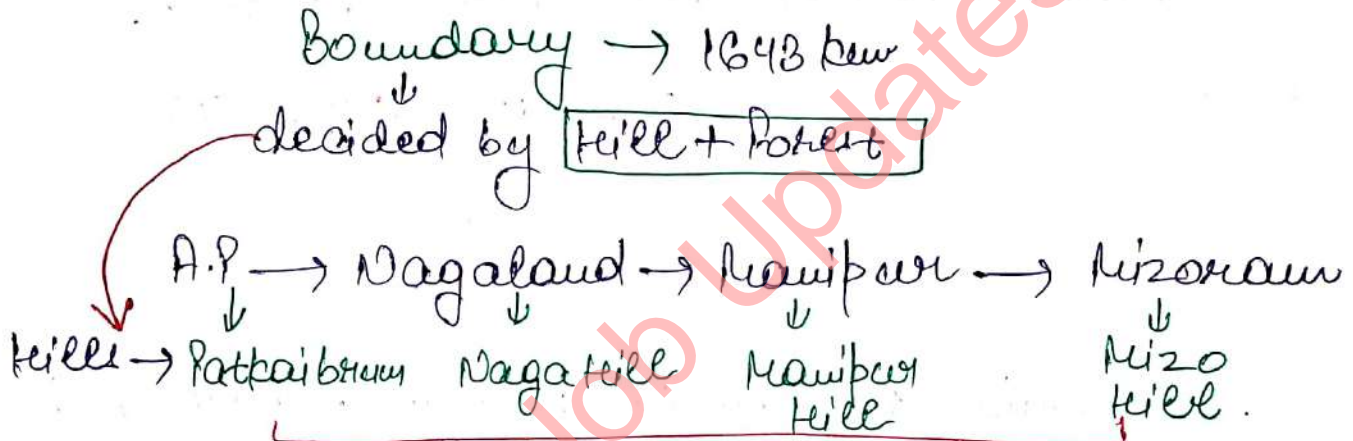 Boundary → 1643 km
↓
decided by Hill + Forest
A.P → Nagaland → Manipur → Mizoram
↓ ↓ ↓ ↓
Hills → Patkaibrum Naga Hill Manipur Hill Mizo Hill.
Job Updates